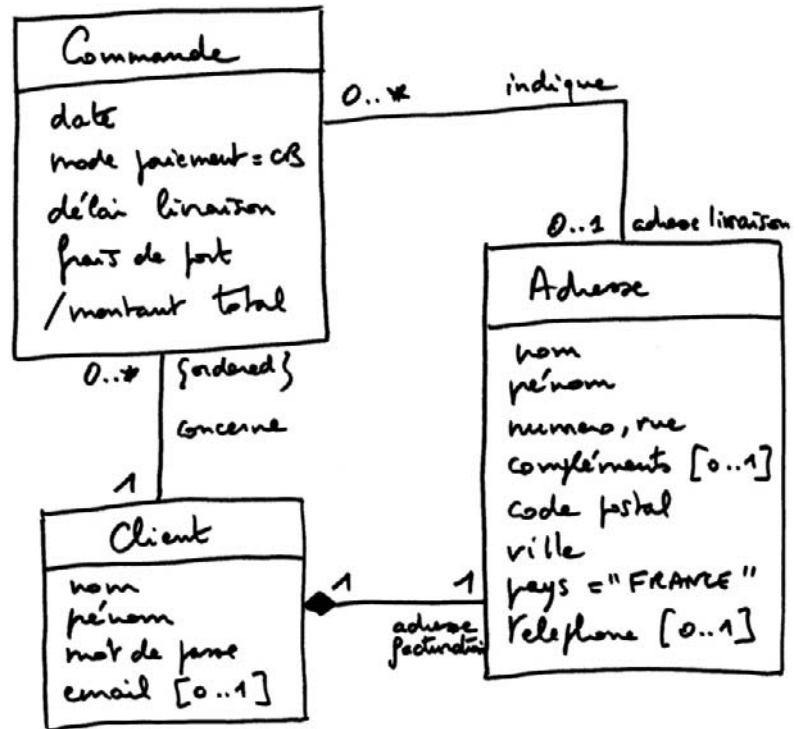 Commande
date
mode paiement = CB
délai livraison
frais de port
/montant total
0..*
indique
0..1
adresse livraison
Adresse
nom
prénom
numero, rue
compléments [0..1]
code postal
ville
pays = "FRANCE"
telephone [0..1]
0..*
{ordered}
concerne
1
Client
nom
prénom
mot de passe
email [0..1]
1
1
adresse
facturation